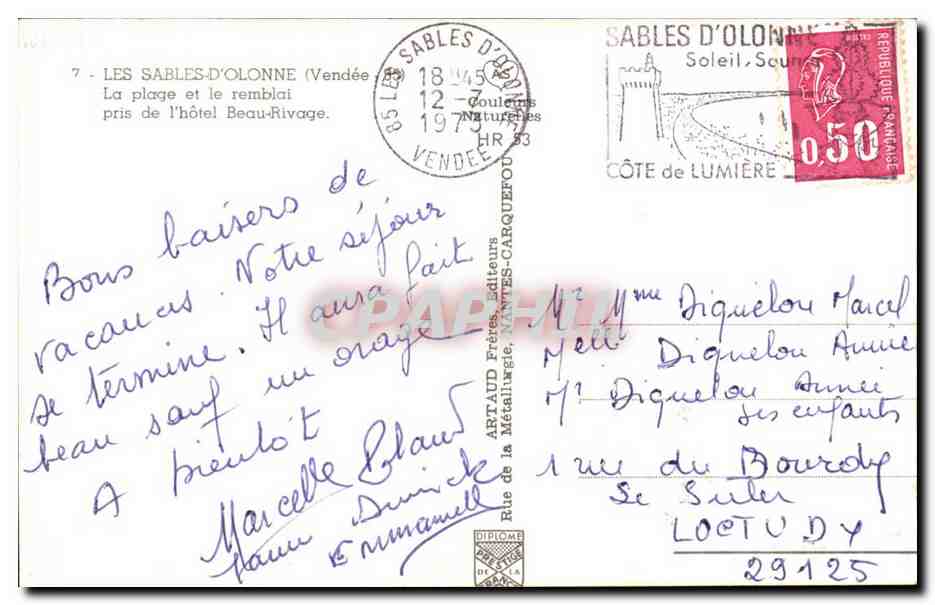 7 - LES SABLES-D'OLONNE (Vendée - 85)
La plage et le remblai
pris de l'hôtel Beau-Rivage.
Couleurs
Naturelles
HR 53
85 LES SABLES D'OLONNE
18 H 45
12 - 7
1973
VENDEE
SABLES D'OLONNE
Soleil.
CÔTE de LUMIÈRE
REPUBLIQUE FRANÇAISE
POSTES
0,50
Bons baisers de
vacances. Notre séjour
se termine. Il aura fait
beau sauf un orage
A bientôt
Marcelle
Emmanuelle
ARTAUD Frères, Editeurs
Rue de la Métallurgie, NANTES-CARQUEFOU
DIPLOME
PRESTIGE
DE LA
FRANCE
CPAPHIL
Mr Mme Diquelou Marcel
Melle Diquelou Annie
Mr Diquelou Année
ses enfants
1 rue du Bourdy
Le Suler
LOCTUDY
29125